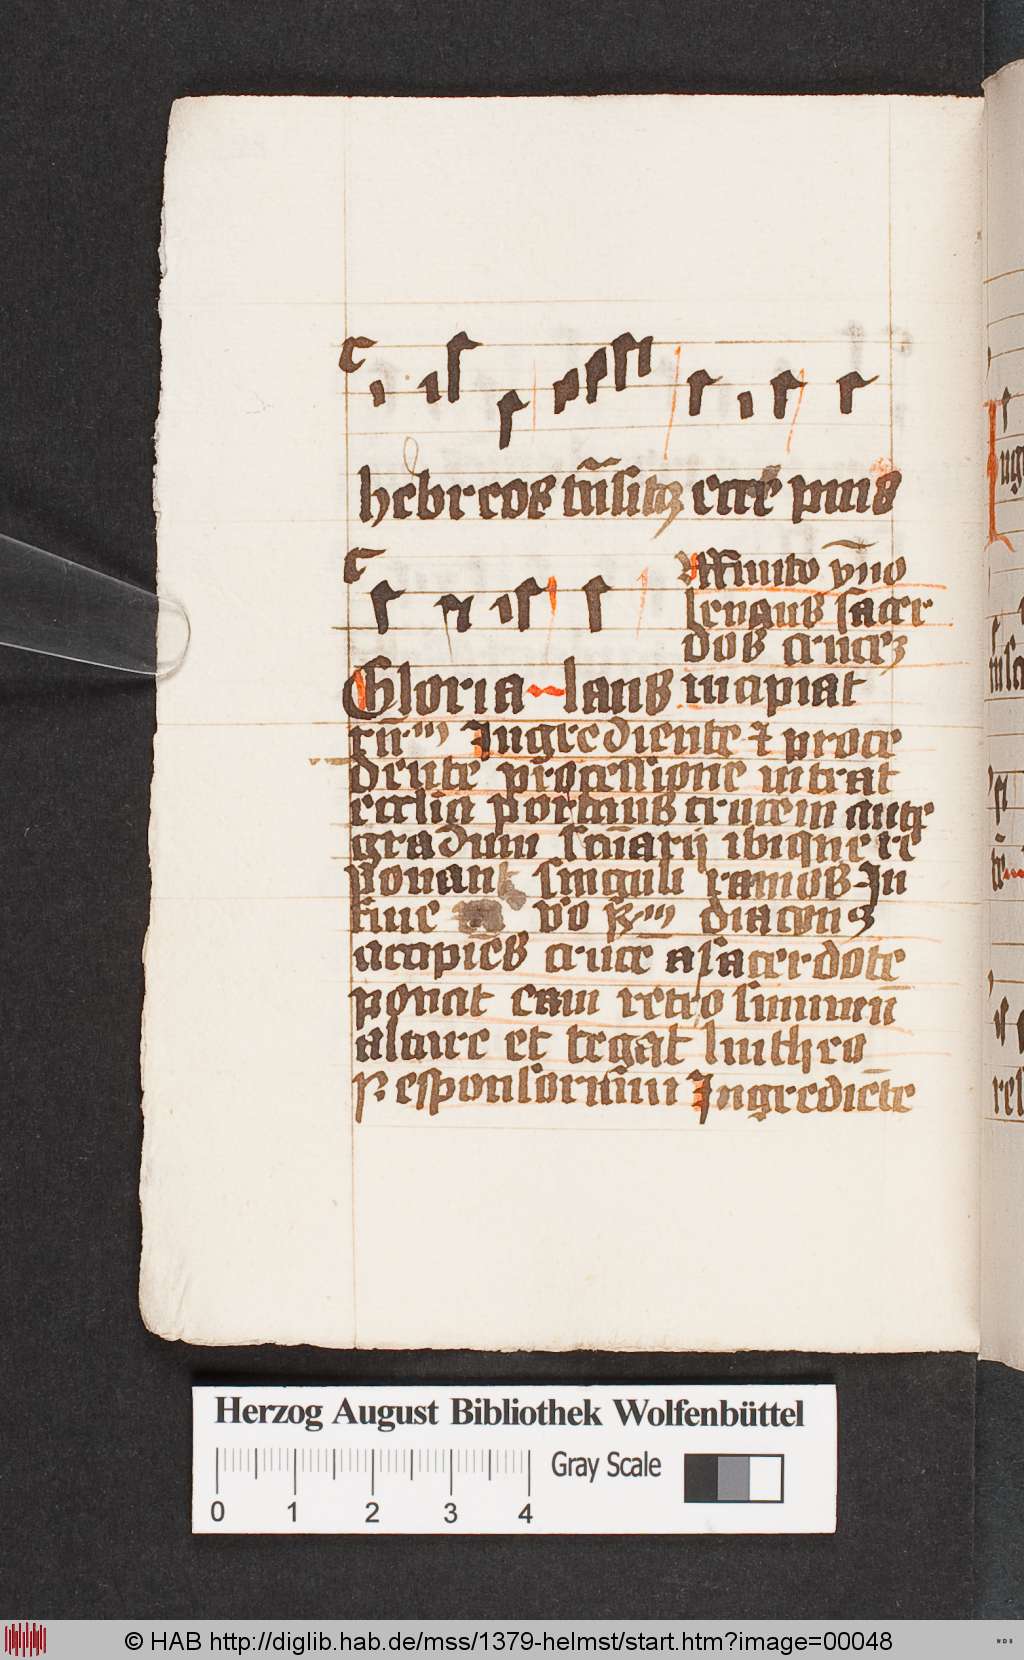 hebreos tu̅sitꝫ ecce pius
Finito y̅no
leuaus sacer
dos crucēꝫ
Gloria laus incipiat
Rm̅ Ingrediente ⁊ proce
dente processione intrat
eccl̅ia portans crucem ante
gradum sctu̅arij ibique re
ponant singuli ramos In
fine v̊o R̅m diaconꝰ
accipiēs crucē a sacerdote
ponat eam retro summū
altare et tegat lintheo
Responsorium Ingrediēte
Herzog August Bibliothek Wolfenbüttel
Gray Scale
0 1 2 3 4
© HAB http://diglib.hab.de/mss/1379-helmst/start.htm?image=00048